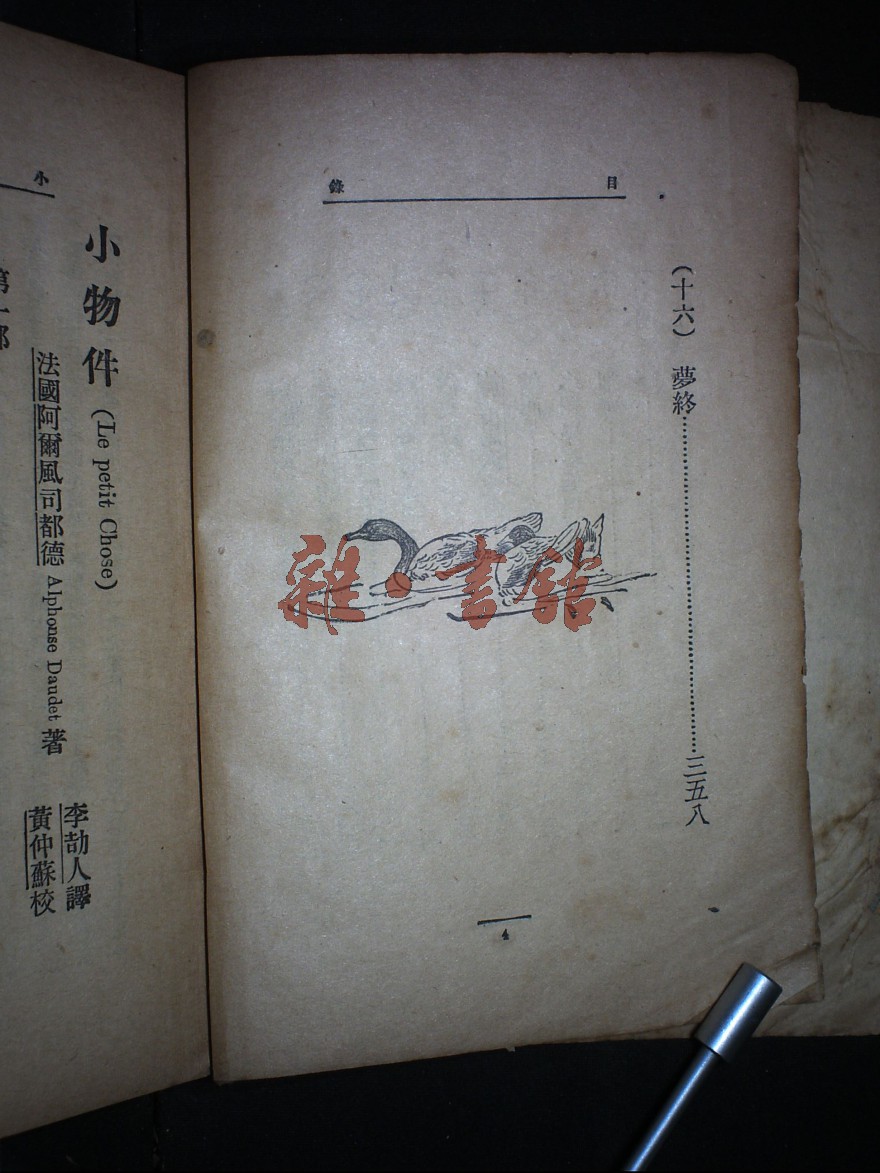 目錄
(十六) 夢終……三五八
4
雜·書館
小
小物件 (Le petit Chose)
法國阿爾風司都德 Alphonse Daudet 著
李劼人譯
黃仲蘇校
第一部